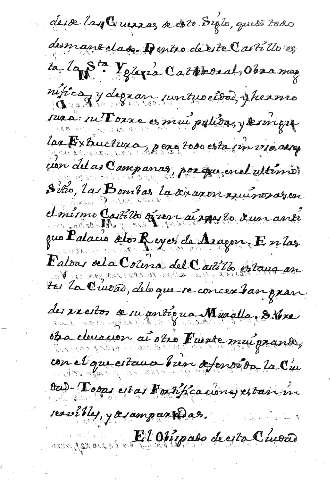 desde las Guerras de este Siglo, que es todo
desmantelado. Dentro de este Castillo es
ta la Sta. Yglesia Cathedral, Obra mag
nifica, y de gran suntuocidad, y hermo
sura su Torre es mui pulida, y de singu
lar Extructura, pero todo esta sin uso, a
cion de las Campanas, porque en el ultimo
Sitio, las Bombas la dexaron en
el mismo Castillo ai resto de un anti
guo Palacio de los Reyes de Aragon. En las
Faldas de la Colina del Castillo estaua an
tes la Ciudad, de lo que se conceruan gran
des restos de su antigua Muralla. Sobre
otra eleuacion ai otro Fuerte mui grande,
con el que estaua bien defendida la Ciu
dad. Todas estas Fortificaciones estan in
servibles, y desamparadas.
El Obispado de esta Ciudad